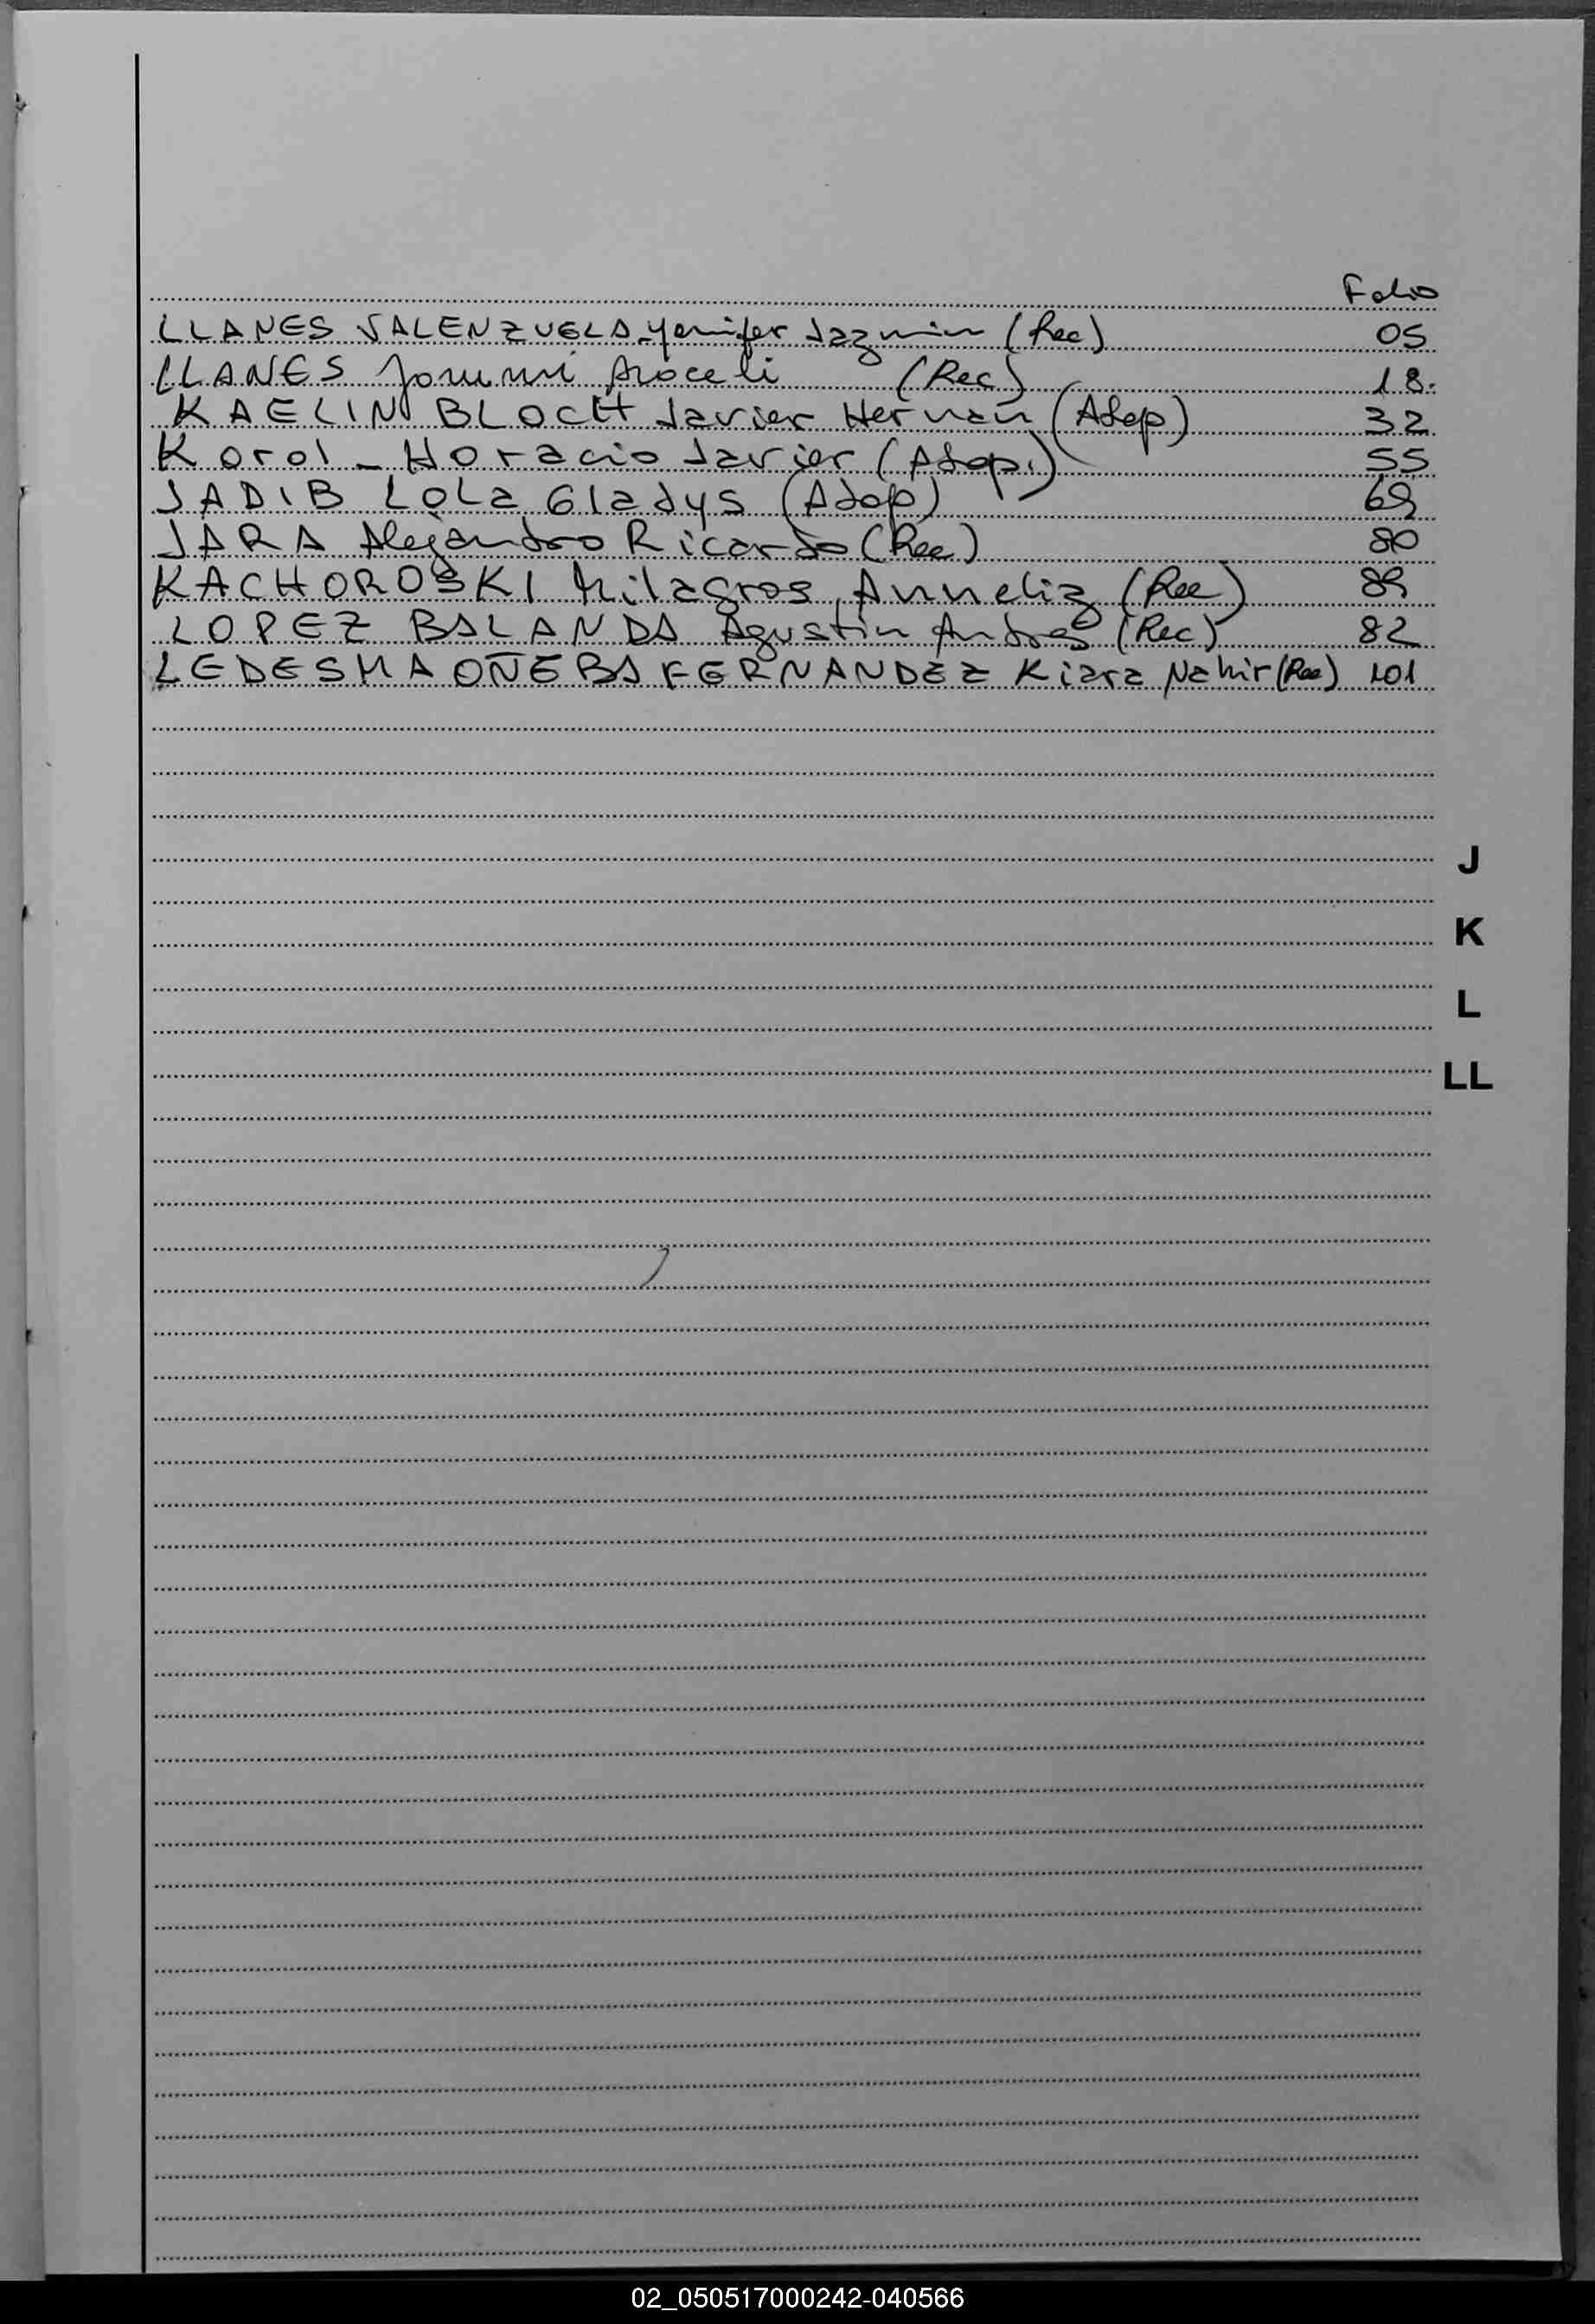 Folio
LLANES VALENZUELA Yenifer Jazmin (Rec) 05
LLANES (Rec) 18.
KAELIN BLOCH Javier Hernán (Adop) 32
Korol - Horacio Javier (Adop.) 55
JADIB Lola Gladys (Adop) 69
JARA Alejandro Ricardo (Rec) 80
KACHOROSKI Milagros Anneliz (Rec) 89
LOPEZ BALANDA Agustin Andres (Rec) 82
LEDESMA FERNANDEZ Kiara Nahir (Rec) 101
J
K
L
LL
02_050517000242-040566